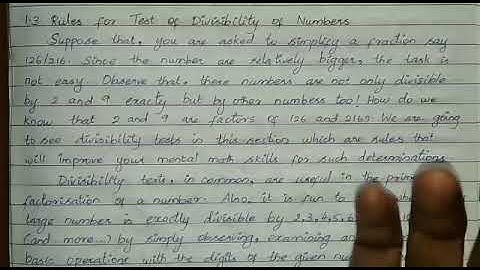 1.3 Rules for Test of Divisibility of Numbers
Suppose that, you are asked to simplify a fraction say
126/216. Since the number are relatively bigger, the task is
not easy. Observe that, these numbers are not only divisible
by 2 and 9 exacty but by other numbers too! How do we
know that 2 and 9 are factors of 126 and 216? We are going
to see divisibility tests in this section which are rules that
will improve your mental math skills for such determinations.
Divisibility tests, in common, are useful in the prime
factorisation of a number. Also, it is fun to
large number is exactly divisible by 2,3,4,5,6
(and more...) by simply observing, examining an
basic operations with the digits of the given num